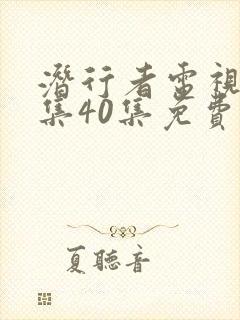 潛行者電視
集40集免費
夏聽音